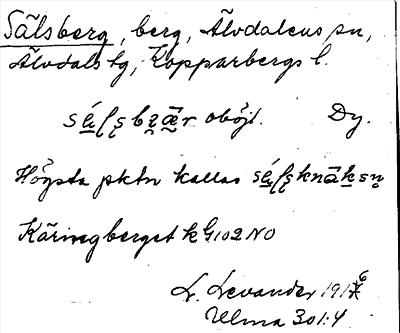 Sälsberg, berg, Älvdalens sn,
Älvdals tg, Kopparbergs l.
obőjt. Dy.
Högsta pktn kallas
Käringberget k G102 NO
L. Levander 1916
Ulma 301:4